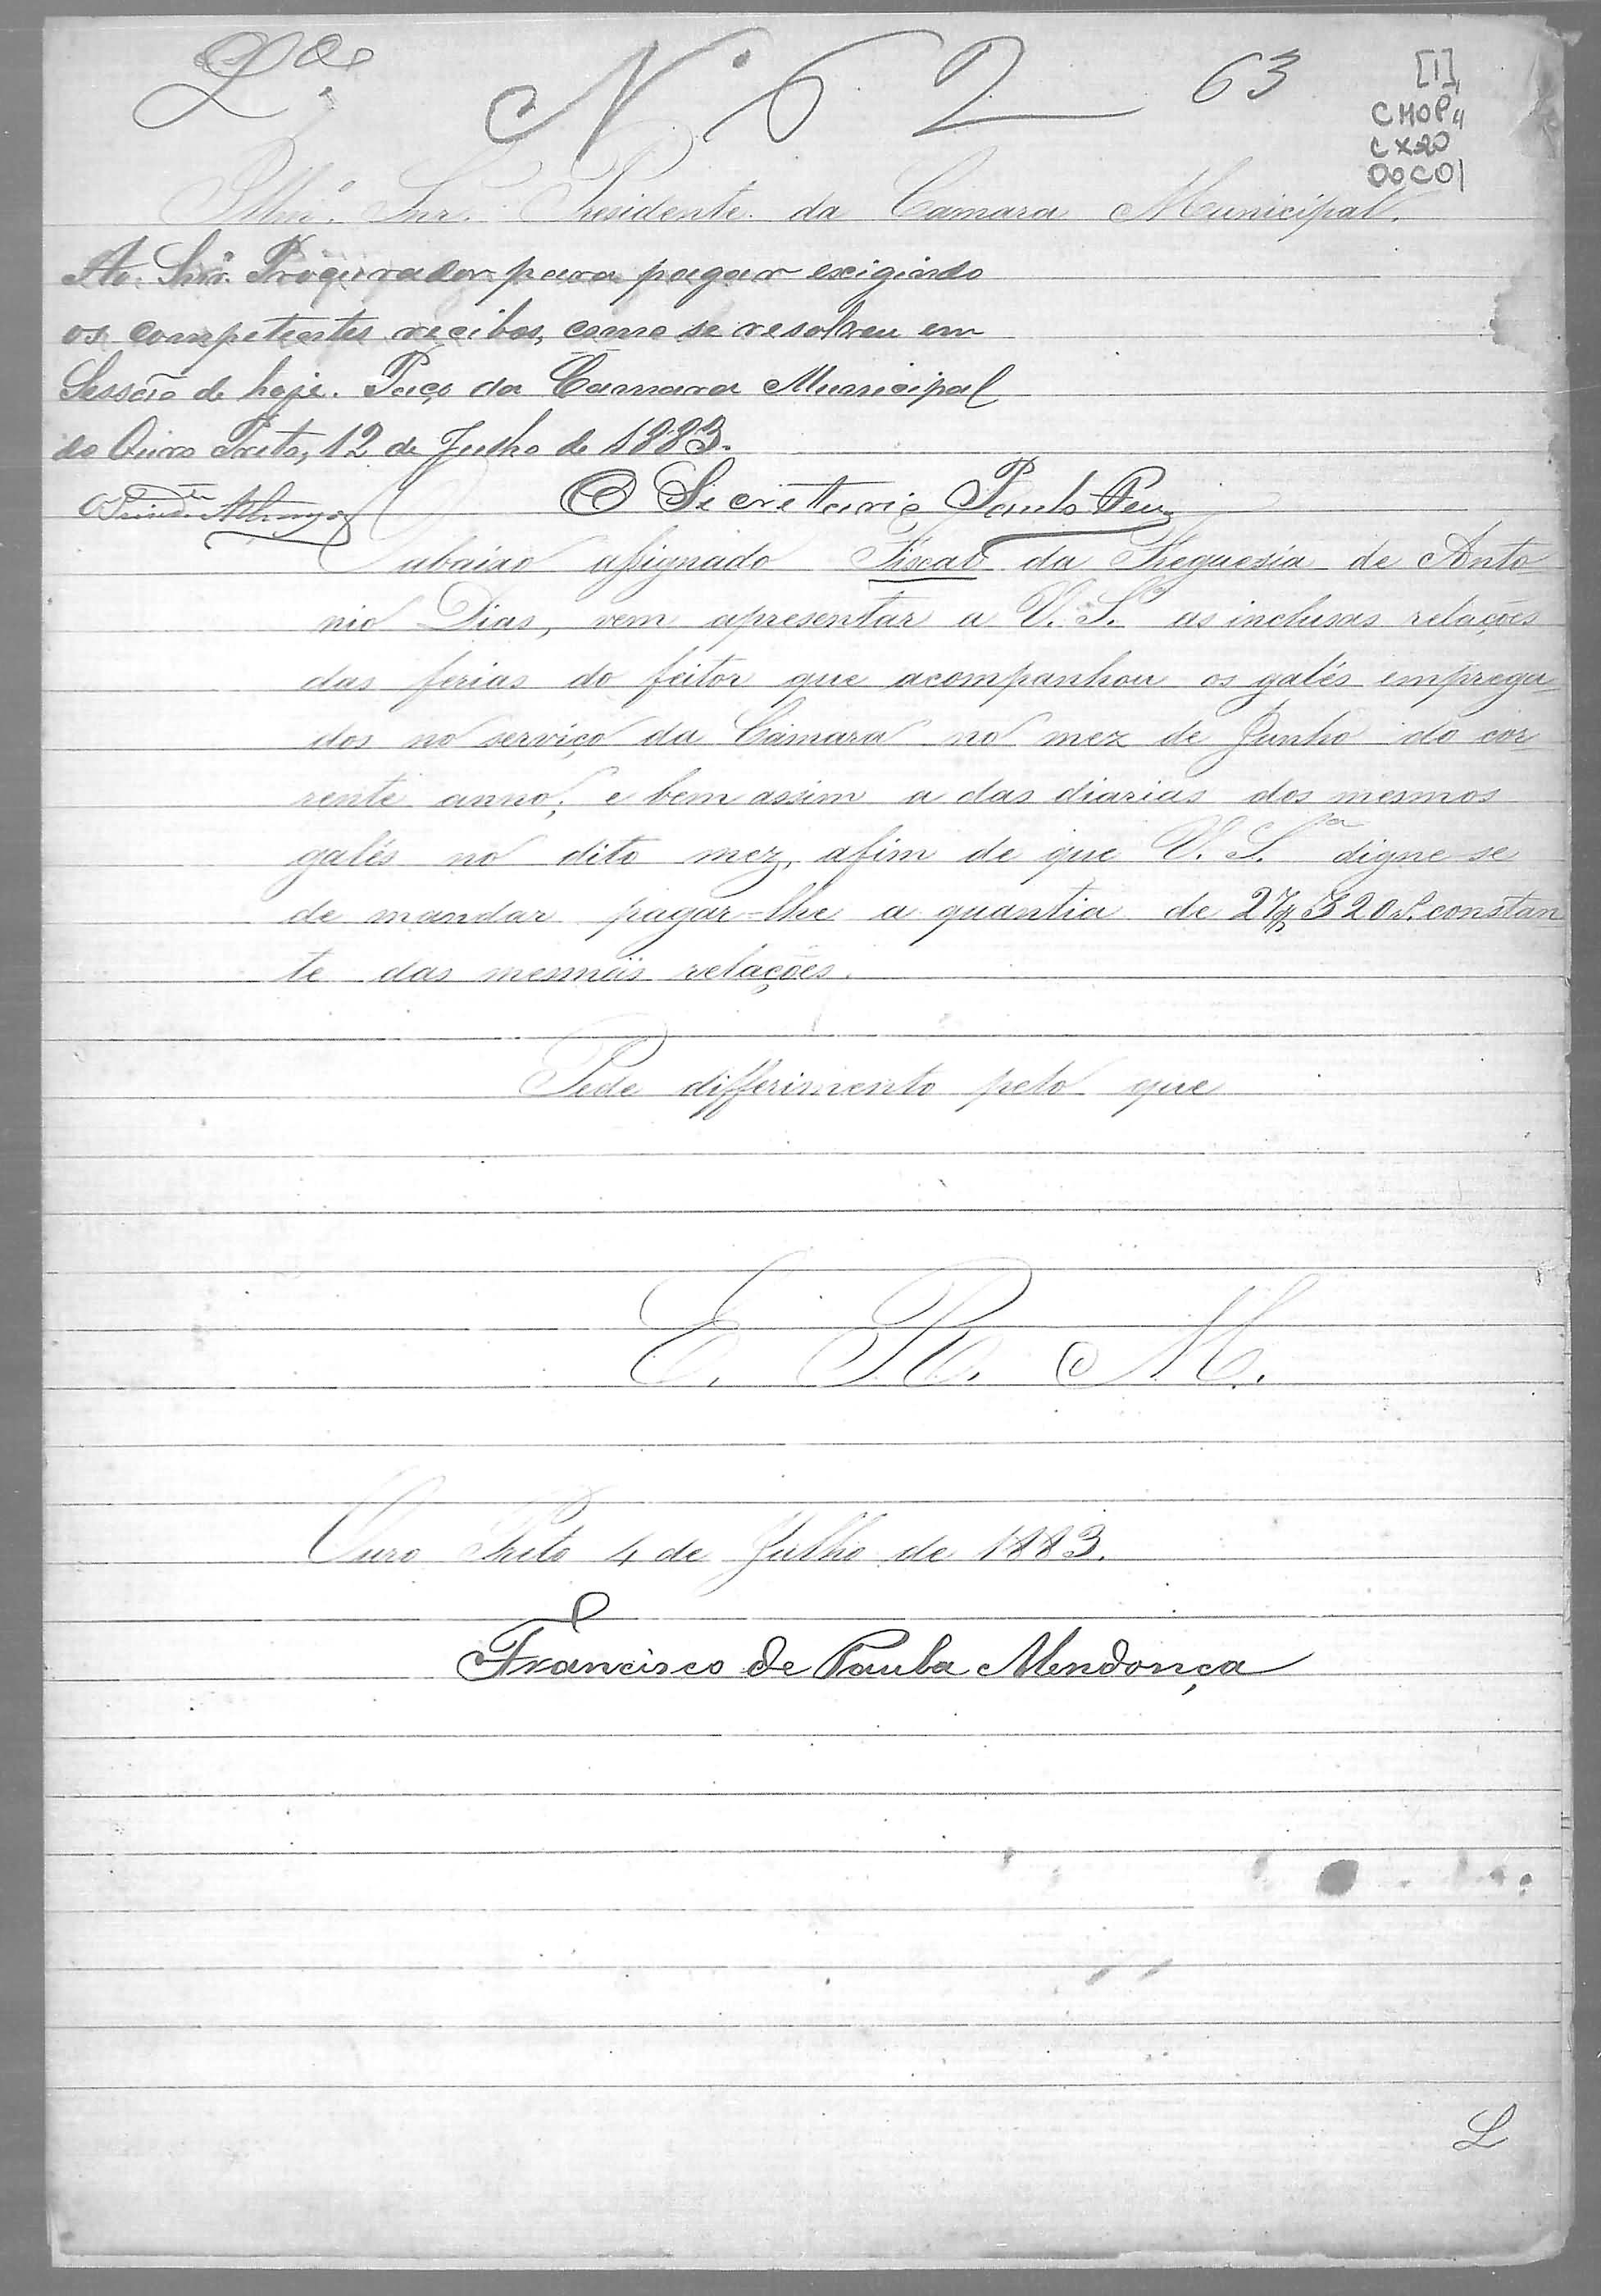 Lda. Nº 62 63
[1]
CMOP
CX20
DOC01
Illmo. Snr. Presidente da Camara Municipal.
Ao Snr. Procurador para pagar exigindo
os competentes recibos, como se resolveu em
Sessão de hoje. Paço da Camara Municipal
do Ouro Preto, 12 de Julho de 1883.
O Secretario Paulo
O abaixo assignado Fiscal da Freguesia de Anto
nio Dias, vem apresentar a V. Sa. as inclusas relações
das ferias do feitor que acompanhou os galés emprega
dos no serviço da Camara no mez de Junho do cor
rente anno; e bem assim a das diarias dos mesmos
galés no dito mez, afim de que V. Sa digne-se
de mandar pagar-lhe a quantia de constan
te das mesmas relações.
Pede differimento pelo que
E. R. M.
Ouro Preto 4 de Julho de 1883.
Francisco de Paula Mendonça
L